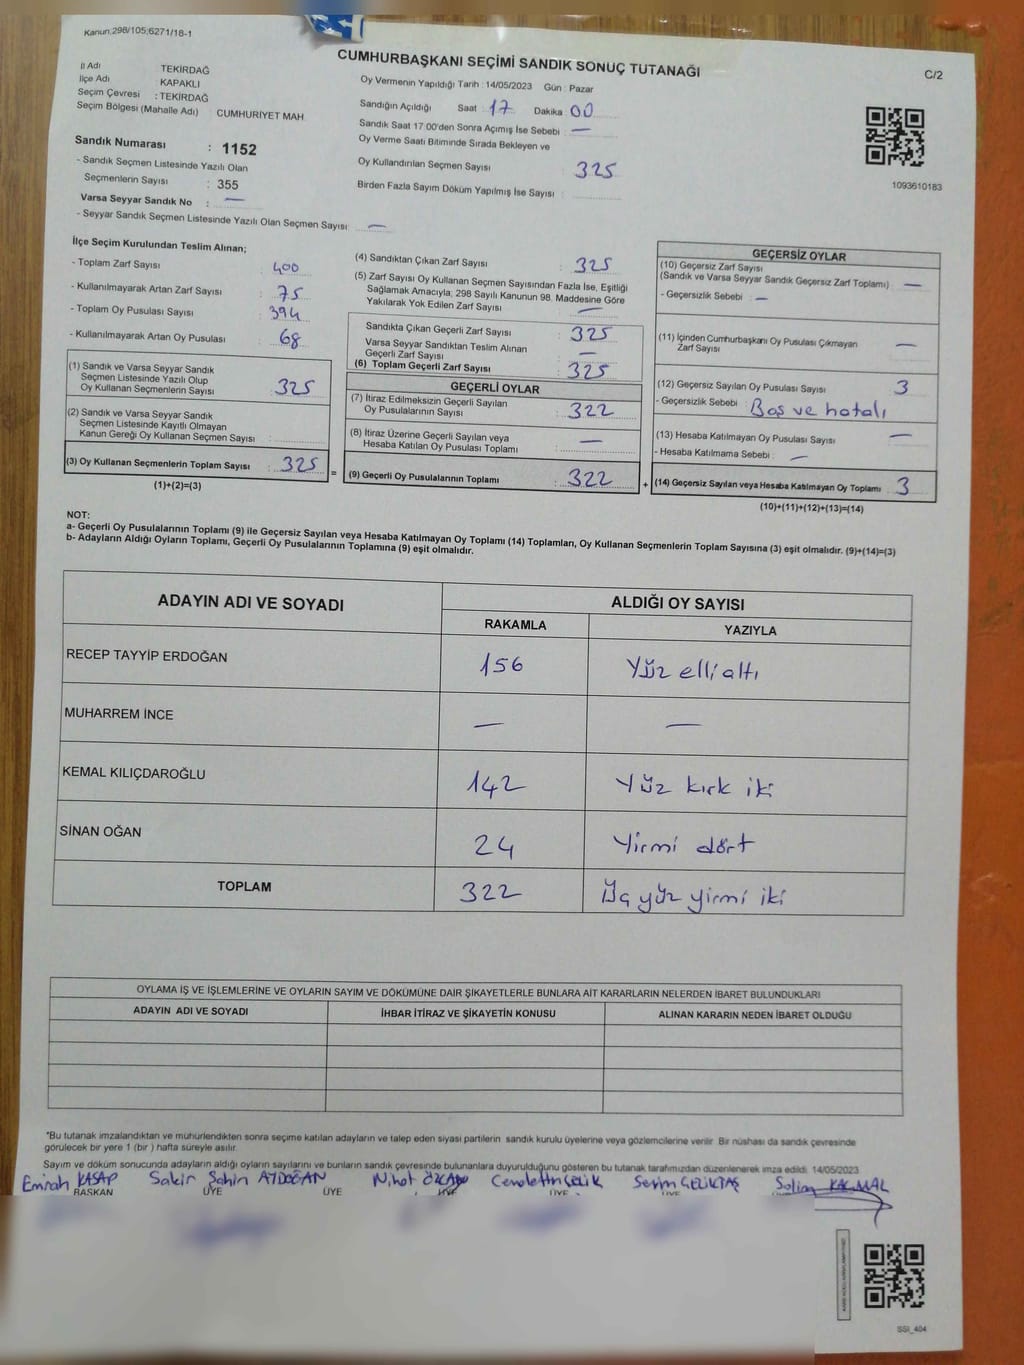 Kanun.298/105;6271/18-1
CUMHURBAŞKANI SEÇİMİ SANDIK SONUÇ TUTANAĞI
C/2
İl Adı TEKİRDAĞ
İlçe Adı KAPAKLI
Seçim Çevresi : TEKİRDAĞ
Seçim Bölgesi (Mahalle Adı) CUMHURİYET MAH.
Oy Vermenin Yapıldığı Tarih : 14/05/2023 Gün : Pazar
Sandığın Açıldığı Saat : 17 Dakika : 00
Sandık Saat 17:00'den Sonra Açımış İse Sebebi : —
Oy Verme Saati Bitiminde Sırada Bekleyen ve
Oy Kullandırılan Seçmen Sayısı : 325
Birden Fazla Sayım Döküm Yapılmış İse Sayısı :
1093610183
Sandık Numarası : 1152
- Sandık Seçmen Listesinde Yazılı Olan
Seçmenlerin Sayısı : 355
Varsa Seyyar Sandık No : —
- Seyyar Sandık Seçmen Listesinde Yazılı Olan Seçmen Sayısı : —
İlçe Seçim Kurulundan Teslim Alınan;
- Toplam Zarf Sayısı : 400
- Kullanılmayarak Artan Zarf Sayısı : 75
- Toplam Oy Pusulası Sayısı : 394
- Kullanılmayarak Artan Oy Pusulası : 68
(1) Sandık ve Varsa Seyyar Sandık
Seçmen Listesinde Yazılı Olup
Oy Kullanan Seçmenlerin Sayısı : 325
(2) Sandık ve Varsa Seyyar Sandık
Seçmen Listesinde Kayıtlı Olmayan
Kanun Gereği Oy Kullanan Seçmen Sayısı :
(3) Oy Kullanan Seçmenlerin Toplam Sayısı : 325
(1)+(2)=(3)
(4) Sandıktan Çıkan Zarf Sayısı : 325
(5) Zarf Sayısı Oy Kullanan Seçmen Sayısından Fazla İse, Eşitliği
Sağlamak Amacıyla, 298 Sayılı Kanunun 98. Maddesine Göre
Yakılarak Yok Edilen Zarf Sayısı : —
Sandıkta Çıkan Geçerli Zarf Sayısı : 325
Varsa Seyyar Sandıktan Teslim Alınan
Geçerli Zarf Sayısı : —
(6) Toplam Geçerli Zarf Sayısı : 325
GEÇERLİ OYLAR
(7) İtiraz Edilmeksizin Geçerli Sayılan
Oy Pusulalarının Sayısı : 322
(8) İtiraz Üzerine Geçerli Sayılan veya
Hesaba Katılan Oy Pusulası Toplamı : —
=
(9) Geçerli Oy Pusulalarının Toplamı : 322
GEÇERSİZ OYLAR
(10) Geçersiz Zarf Sayısı
(Sandık ve Varsa Seyyar Sandık Geçersiz Zarf Toplamı) : —
- Geçersizlik Sebebi : —
(11) İçinden Cumhurbaşkanı Oy Pusulası Çıkmayan
Zarf Sayısı : —
(12) Geçersiz Sayılan Oy Pusulası Sayısı : 3
- Geçersizlik Sebebi : Boş ve hatalı
(13) Hesaba Katılmayan Oy Pusulası Sayısı : —
- Hesaba Katılmama Sebebi : —
+
(14) Geçersiz Sayılan veya Hesaba Katılmayan Oy Toplamı : 3
(10)+(11)+(12)+(13)=(14)
NOT:
a- Geçerli Oy Pusulalarının Toplamı (9) ile Geçersiz Sayılan veya Hesaba Katılmayan Oy Toplamı (14) Toplamları, Oy Kullanan Seçmenlerin Toplam Sayısına (3) eşit olmalıdır. (9)+(14)=(3)
b- Adayların Aldığı Oyların Toplamı, Geçerli Oy Pusulalarının Toplamına (9) eşit olmalıdır.
ADAYIN ADI VE SOYADI ALDIĞI OY SAYISI
RAKAMLA YAZIYLA
RECEP TAYYİP ERDOĞAN 156 Yüz elli altı
MUHARREM İNCE — —
KEMAL KILIÇDAROĞLU 142 Yüz kırk iki
SİNAN OĞAN 24 Yirmi dört
TOPLAM 322 Üç yüz yirmi iki
OYLAMA İŞ VE İŞLEMLERİNE VE OYLARIN SAYIM VE DÖKÜMÜNE DAİR ŞİKAYETLERLE BUNLARA AİT KARARLARIN NELERDEN İBARET BULUNDUKLARI
ADAYIN ADI VE SOYADI İHBAR İTİRAZ VE ŞİKAYETİN KONUSU ALINAN KARARIN NEDEN İBARET OLDUĞU
*Bu tutanak imzalandıktan ve mühürlendikten sonra seçime katılan adayların ve talep eden siyasi partilerin sandık kurulu üyelerine veya gözlemcilerine verilir. Bir nüshası da sandık çevresinde
görülecek bir yere 1 (bir ) hafta süreyle asılır.
Sayım ve döküm sonucunda adayların aldığı oyların sayılarını ve bunların sandık çevresinde bulunanlara duyurulduğunu gösteren bu tutanak tarafımızdan düzenlenerek imza edildi. 14/05/2023
Emrah KASAP Sakir Şahin AYDOĞAN Nihat ÖZCAN Cemalettin ÇELİK Serim ÇELİKTAŞ
BAŞKAN ÜYE ÜYE ÜYE ÜYE
SSI_404